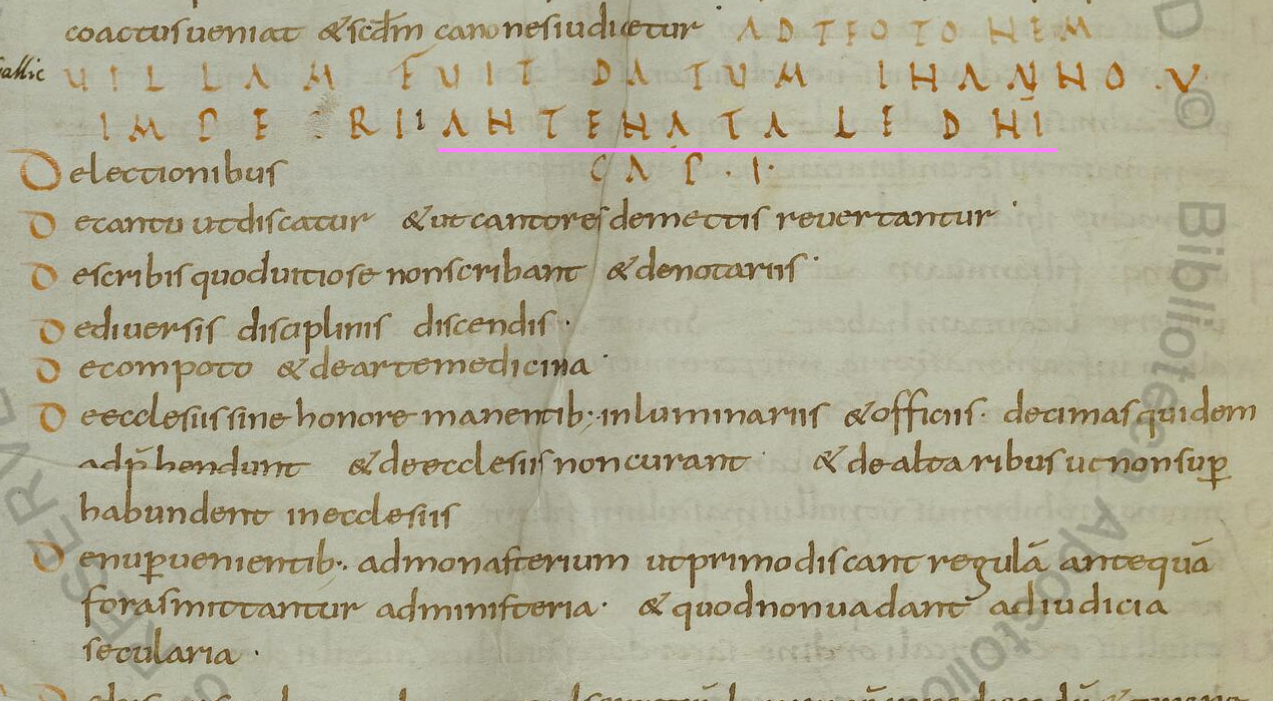 coactus ueniat & scdm canones iudicetur ADTEOTONEM
Gallic UILLAM FUIT DATUM INANNO .V
IMPERII ANTENATALE DNI
De lectionibus CAPI·
De cantu ut discatur & ut cantores de mettis revertantur·
De scribis quod uitiose non scribant & de notariis·
De diuersis disciplinis discendis·
De compoto & de arte medicina·
De ecclesiis sine honore manentib; in luminariis & officiis· decimas quidem
adp̄hendunt & de ecclesiis non curant· & de altaribus ut non sup̄
habundent in ecclesiis
De nup̄ uenientib; ad monasterium ut primo discant regulā antequā
foras mittantur ad ministeria· & quod non uadant ad iudicia
secularia·